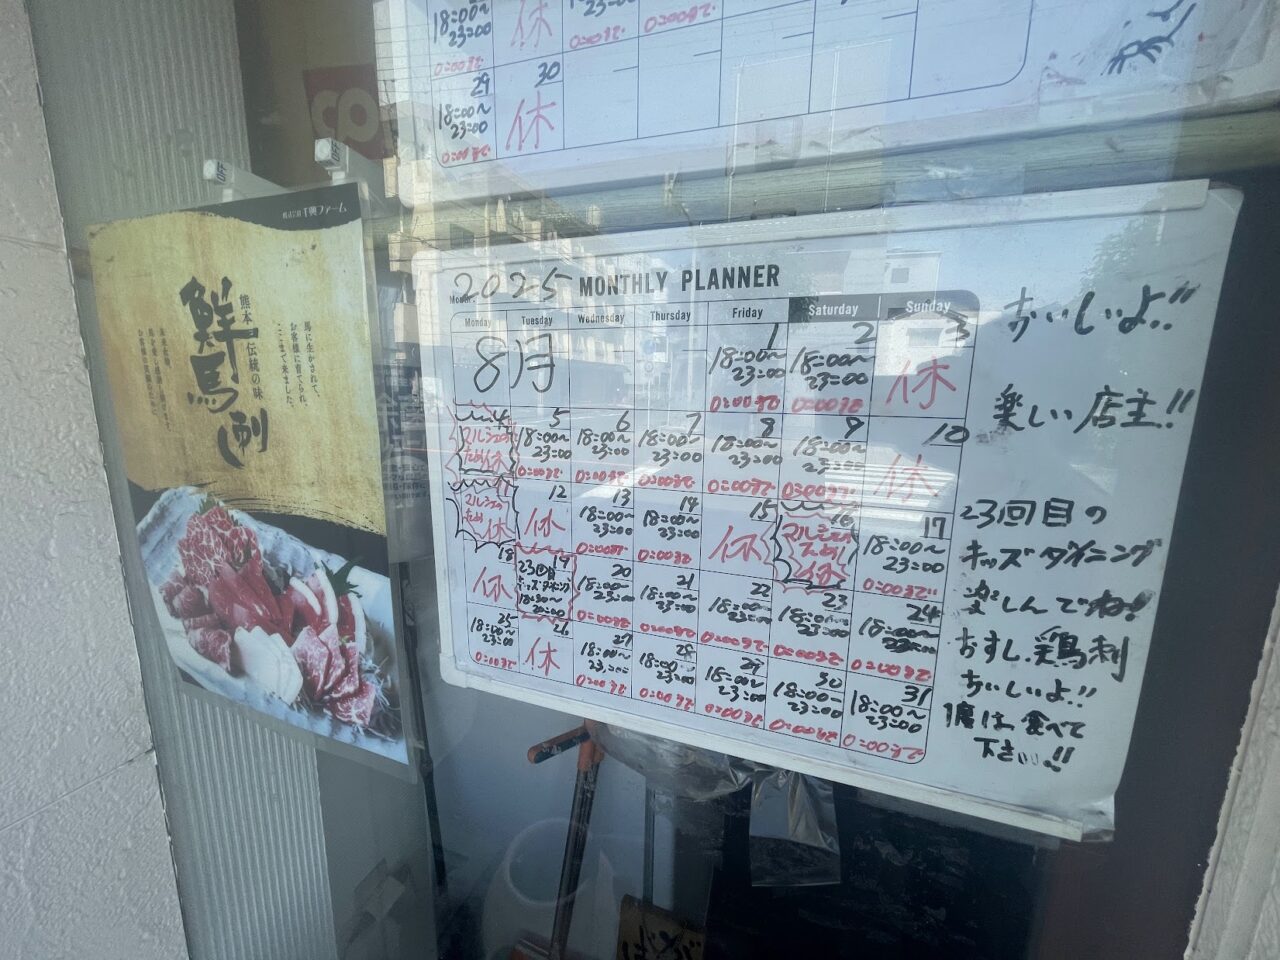 18:00〜
23:00
0:00まで
休
23:00
0:00まで
0:00まで
29
18:00〜
23:00
0:00まで
30
休
千興ファーム
鮮馬刺し
熊本 伝統の味
馬に生かされて、
お客様に育てられ、
ここまで来ました。
2025 MONTHLY PLANNER
Month
Monday Tuesday Wednesday Thursday Friday Saturday Sunday
8月
1
18:00〜
23:00
0:00まで
2
18:00〜
23:00
0:00まで
3
休
4
マルシェの
ため休
5
18:00〜
23:00
0:00まで
6
18:00〜
23:00
0:00まで
7
18:00〜
23:00
0:00まで
8
18:00〜
23:00
0:00まで
9
18:00〜
23:00
0:00まで
10
休
11
マルシェの
ため休
12
休
13
18:00〜
23:00
0:00まで
14
18:00〜
23:00
0:00まで
15
休
16
マルシェの
ため
休
17
18:00〜
23:00
0:00まで
18
休
19
23回目
キッズダイニング
20
18:00〜
23:00
0:00まで
21
18:00〜
23:00
0:00まで
22
18:00〜
23:00
0:00まで
23
18:00〜
23:00
0:00まで
24
18:00〜
23:00
0:00まで
25
18:00〜
23:00
0:00まで
26
休
27
18:00〜
23:00
0:00まで
28
18:00〜
23:00
0:00まで
29
18:00〜
23:00
0:00まで
30
18:00〜
23:00
0:00まで
31
18:00〜
23:00
0:00まで
おいしいよ!!
楽しい店主!!
23回目の
キッズダイニング
楽しんでね!
おすし、鶏刺
おいしいよ!!
1度は食べて
下さい!!